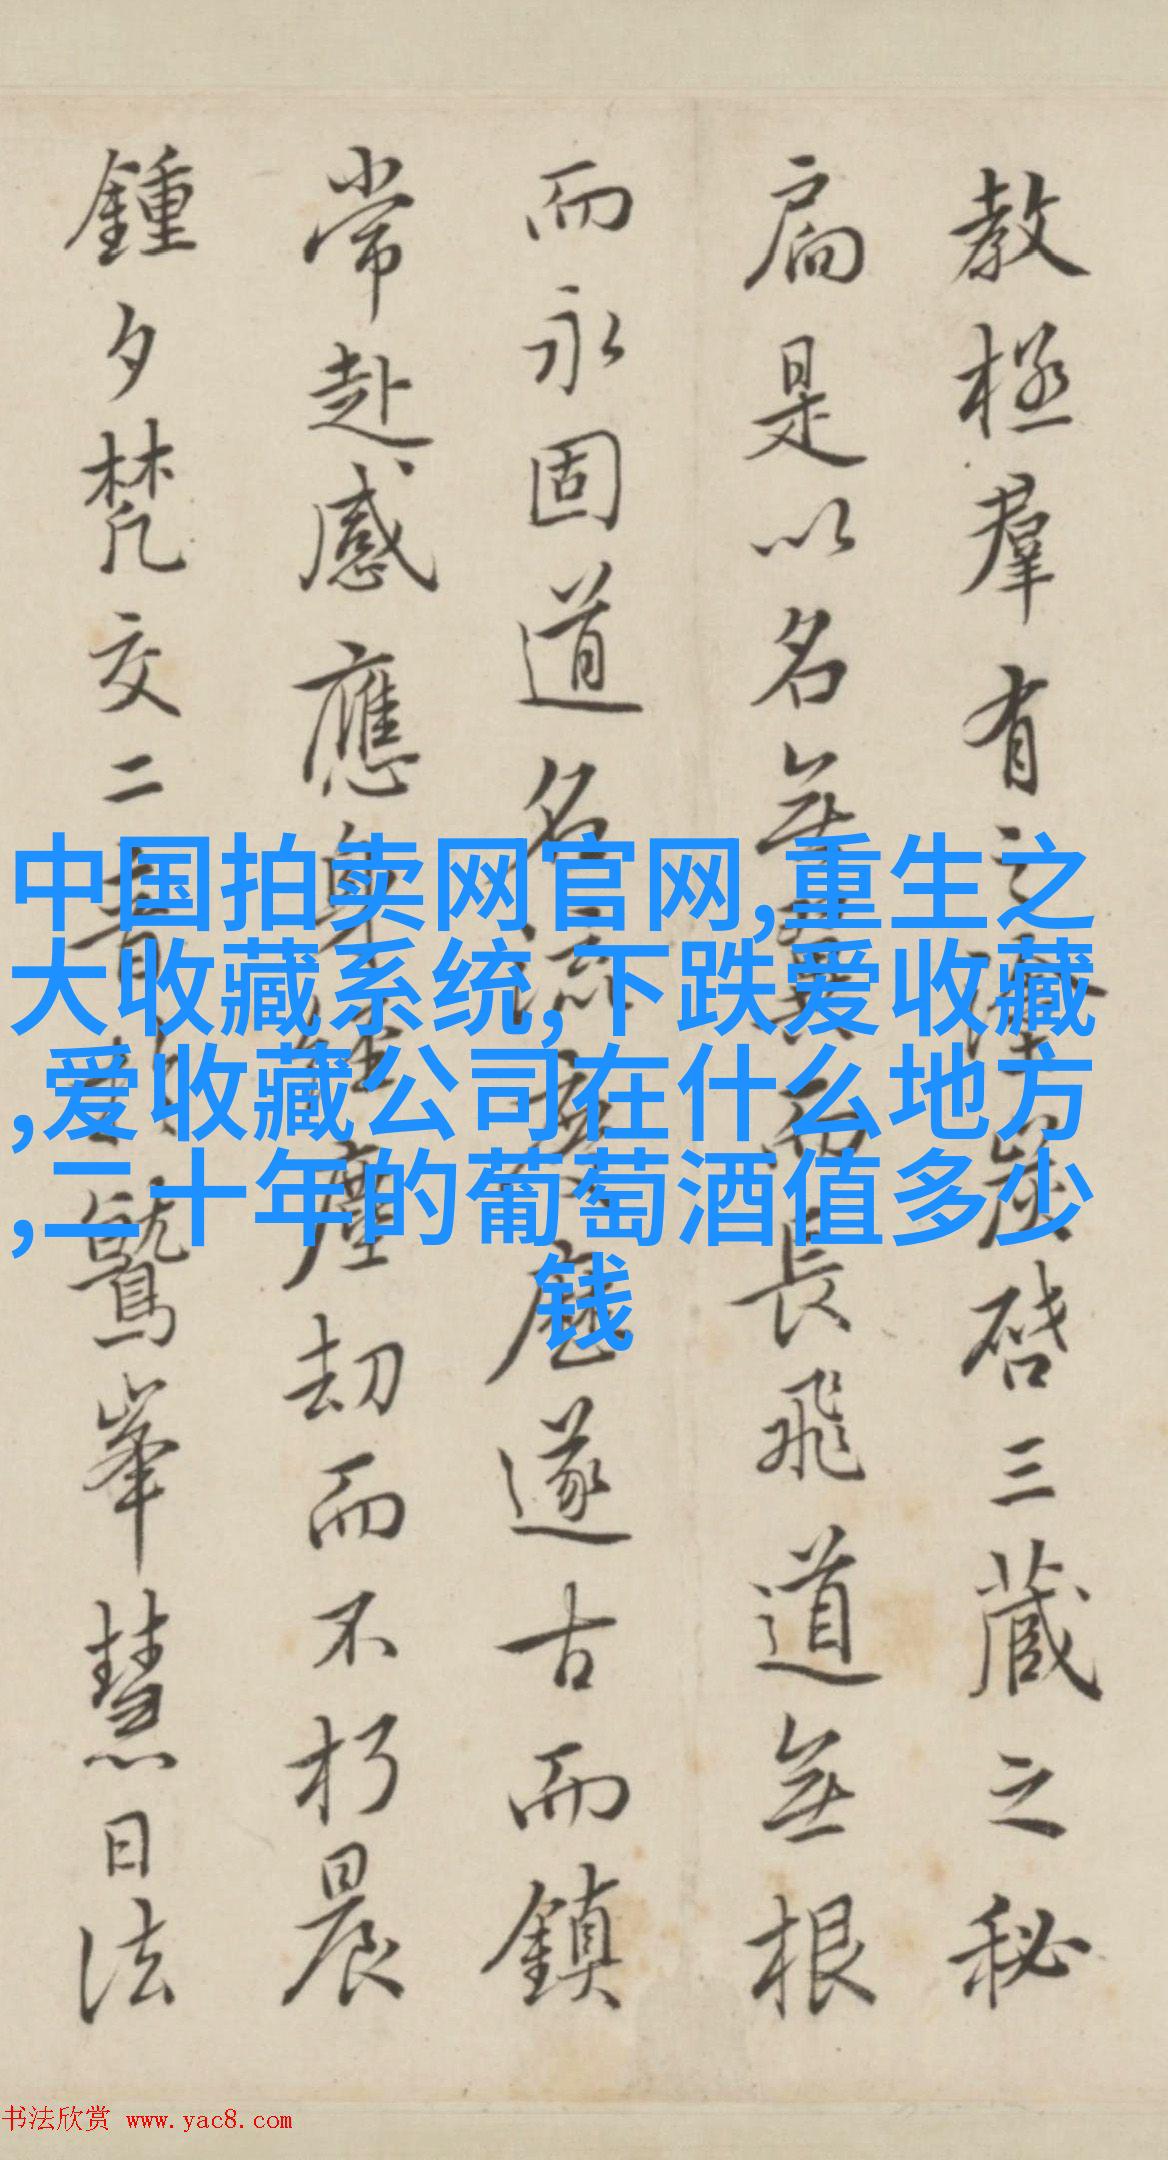 教極羣有之塗炭啓三藏之秘
扃是以名無翼而長飛道無根
而永固道名流慶歷遂古而鎮
常赴感應身經塵劫而不朽晨
鍾夕梵交二音於鷲峯慧日法
中国拍卖网官网,重生之
大收藏系统,下跌爱收藏
,爱收藏公司在什么地方
,二十年的葡萄酒值多少
钱
书法欣赏 www.yac8.com